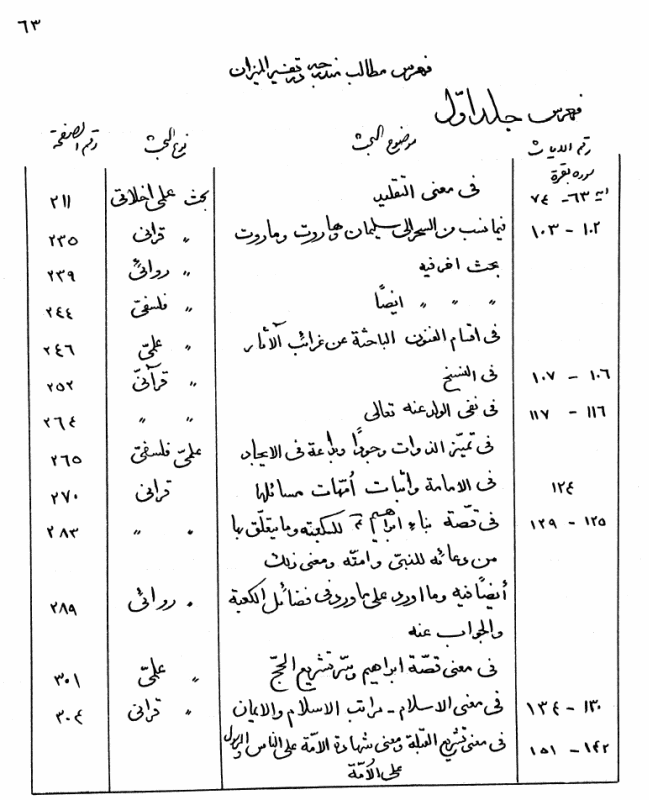 ٦٣
فهرس مطالب مندرجه در تفسیر المیزان
فهرس جلد اوّل
رقم الایات موضوع البحث نوع البحث رقم الصفحة
سوره بقرة
ایه ٦٣ - ٧٤ فی معنی التقلید بحث علمی اخلاقی ٢١١
١٠٢ - ١٠٣ فیما نسب من السحر الی سلیمان وهاروت وماروت " قرانی ٢٣٥
بحث اخر فیه " روائیّ ٢٣٩
" " " ایضًا " فلسفیّ ٢٤٤
فی اقسام الفنون الباحثة عن غرائب الآثار " علمیّ ٢٤٦
١٠٦ - ١٠٧ فی النسخ " قرآنیّ ٢٥٢
١١٦ - ١١٧ فی نفی الولد عنه تعالی " " ٢٦٤
فی تمیّز الذوات وجودًا وبداعة فی الایجاد علمیّ فلسفیّ ٢٦٥
١٢٤ فی الامامة واثبات اُمّهات مسائلها قرانی ٢٧٠
١٢٥ - ١٢٩ فی قصّة بناء ابراهیم ع للکعبة وما یتعلّق بها " " ٢٨٣
من دعائه للنبیّ وامته ومعنی ذلك
أیضًا فیه وما اورد علی ما ورد فی فضائل الکعبة " روائی ٢٨٩
والجواب عنه
فی معنی قصّة ابراهیم وسّر تشریع الحجّ " علمیّ ٣٠١
١٣٠ - ١٣٤ فی معنی الاسلام - مراتب الاسلام والایمان " قرانی ٣٠٤
١٤٢ - ١٥١ فی معنی تشریع القبلة ومعنی شهادة الامّة علی الناس والرسول
علی الاُمّة